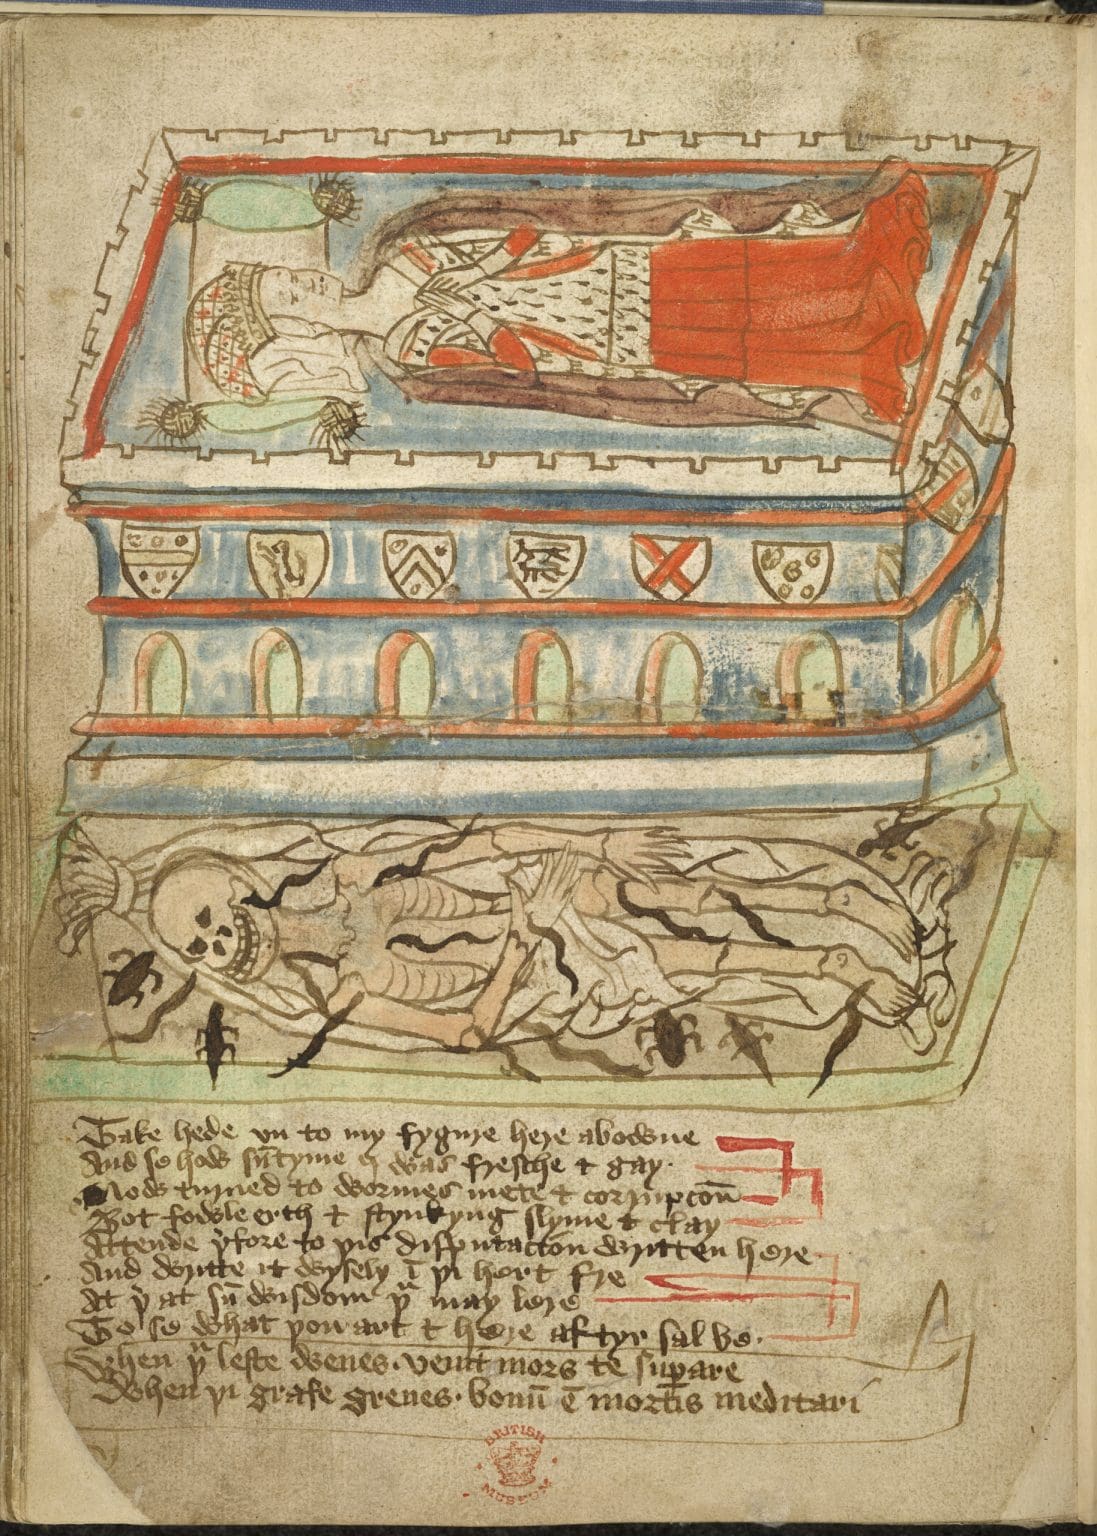 Take hede vn to my fygure here abowne
And se how sūtyme I was fresche & gay.
Now turned to wormes mete & corrupcoū
Bot fowle erth & stynkyng slyme & clay
Attende þfore to þis disputacion wrytten here
And wryte it wysely ī þi hert fre
At þ at sū wisdom þu may lere
To se what þou art & here aftyr sal be.
When þu leste wenes. venit mors te supare
When þi grafe grenes. bonū ē mortis meditari
BRITISH
MUSEUM